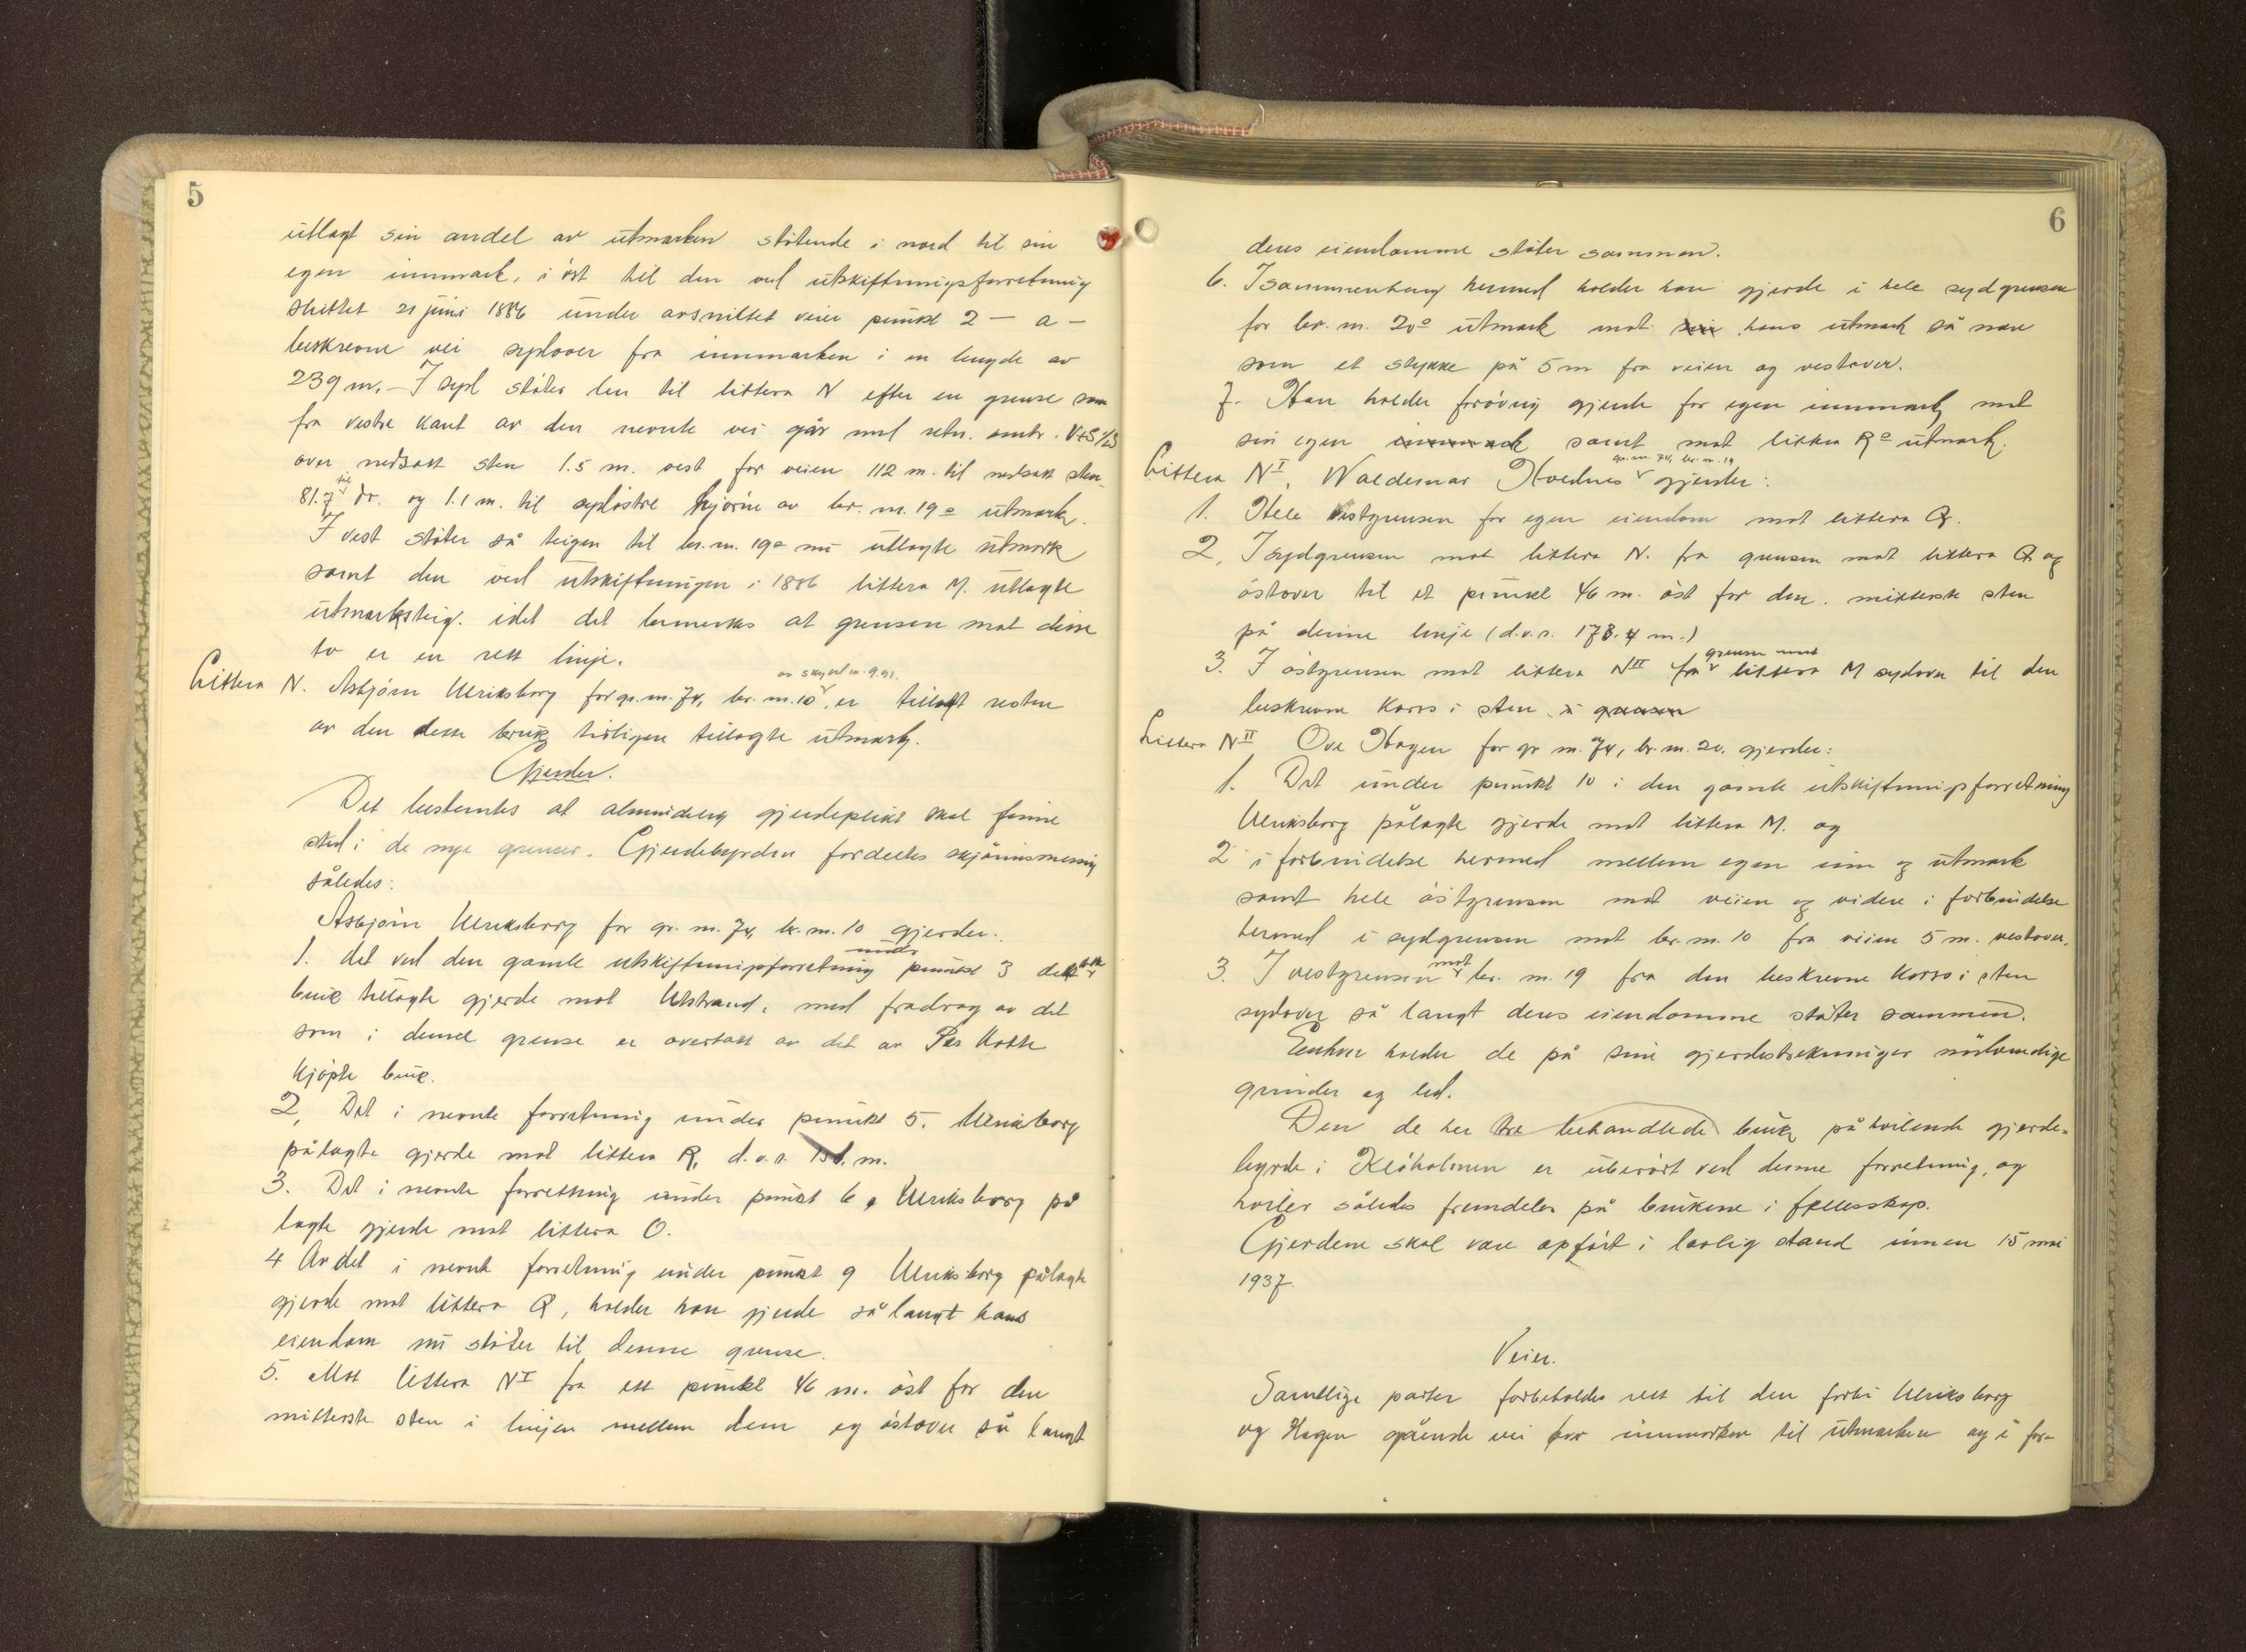 5
utlagt sin andel av utmarken støtende i nord til sin
egen innmark, i øst til den ved utskiftningsforretning
sluttet 21 juni 1886 under avsnittet veier punkt 2 — a —
beskrevne vei sydover fra innmarken i en lengde av
239 m. — I syd støter den til littera N efter en grense som
fra vestre kant av den nevnte vei går med retn. omtr.
over nedsatt sten 1.5 m. vest for veien 112 m. til nedsatt sten
81.7 til do. og 1.1 m. til sydøstre hjørne av br. nr. 19s utmark.
I vest støter så teigen til br. nr. 19s nu utlagte utmark
samt den ved utskiftningen i 1886 littera M. utlagte
utmarksteig. idet det bemerkes at grensen mot disse
to er en rett linje.
Littera N. Asbjørn Ulriksborg for gr. nr. 74, br. nr. 10 av skyld m. 9.91. er tillagt resten
av den dette bruk tidligere tillagte utmark.
Gjerder.
Det bestemtes at almindelig gjerdeplikt skal finne
sted i de nye grenser. Gjerdebyrden fordeltes skjønnsmessig
således:
Asbjørn Ulriksborg for gr. nr. 74, br. nr. 10 gjerder.
1. det ved den gamle utskiftningsforretning under punkt 3 dette
bruk tillagte gjerde mot Ulstrand, med fradrag av det
som i denne grense er overtatt av det av Per Moth
kjøpte bruk.
2, Det i nevnte forretning under punkt 5. Ulriksborg
pålagte gjerde mot littera R, d.v.s. m.
3. Det i nevnte forretning under punkt 6, Ulriksborg på
lagte gjerde mot littera O.
4 Av det i nevnte forretning under punkt 9 Ulriksborg pålagte
gjerde mot littera Q, holder han gjerde så langt hans
eiendom nu støter til denne grense.
5. Mot littera NI fra ett punkt 46 m. øst for den
mitterste sten i linjen mellem dem og østover så langt
6
deres eiendomme støter sammen.
6. I sammenheng hermed holder han gjerde i hele sydgrensen
for br. nr. 20s utmark mot sin hans utmark så nær
som et stykke på 5 m fra veien og vestover.
7. Han holder forøvrig gjerde for egen innmark mot
sin egen innmark samt mot littera Rs utmark.
Littera NI, Waldemar Hovdnes gr. nr. 74, br. nr. 19 gjerder:
1. Hele vestgrensen for egen eiendom mot littera Q.
2, I sydgrensen mot littera N. fra grensen mot littera Q og
østover til et punkt 46 m. øst for den mitterste sten
på denne linje (d.v.s. 178.4 m.)
3. I østgrensen mot littera NII fra grensen mot littera M sydover til den
beskrevne kors i sten i grensen
Littera NII Ove Hagen for gr nr. 74, br. nr. 20. gjerder:
1. Det under punkt 10 i den gamle utskiftningsforretning
Ulriksborg pålagte gjerde mot littera M. og
2 i forbindelse hermed mellem egen inn og utmark
samt hele østgrensen mot veien og videre i forbindelse
hermed i sydgrensen mot br. nr. 10 fra veien 5 m. vestover.
3. I vestgrensen mot br. nr. 19 fra den beskrevne kors i sten
sydover så langt deres eiendomme støter sammen.
Enhver holder de på sine gjerdestrekninger nødvendige
grinder og led.
Den de her tre behandlede bruk påhvilende gjerde-
byrde i Kløholmen er uberørt ved denne forretning, og
hviler således fremdeles på brukene i fellesskap.
Gjerdene skal være opført i lovlig stand innen 15 mai
1937.
Veier.
Samtlige parter forbeholdes rett til den forbi Ulriksborg
og Hagen gående vei fra innmarken til utmarken og i for-